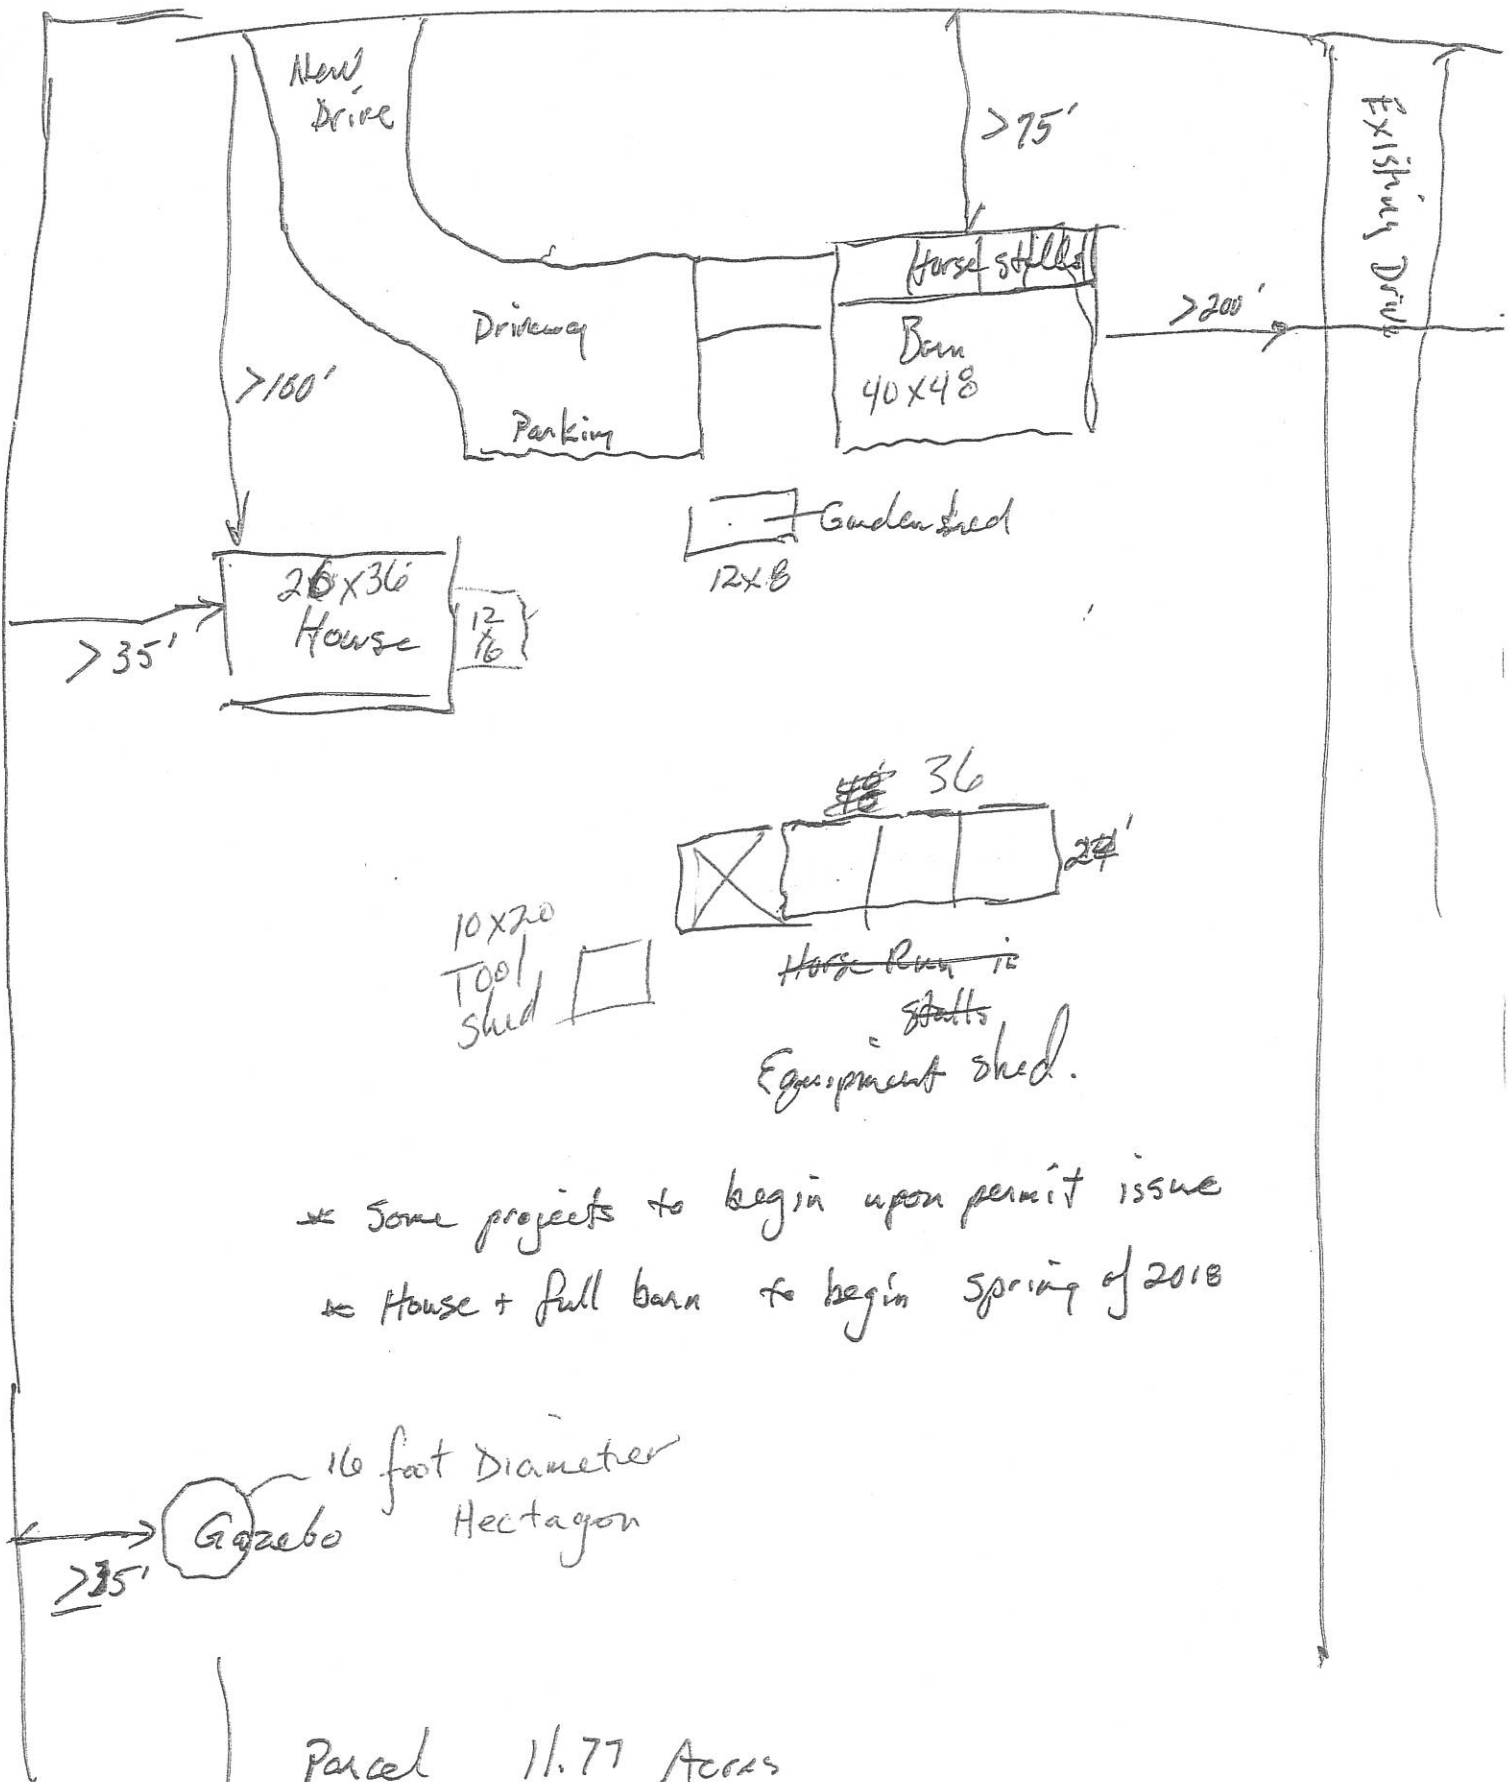 New
Drive
>75'
Existing Drive
Horse stalls
>200'
Driveway
Barn
40x48
>100'
Parking
Garden shed
12x8
26x36
House
12
x
16
>35'
36
24'
10x20
Tool
shed
Horse Run in
stalls
Equipment shed.
* Some projects to begin upon permit issue
* House + full barn to begin spring of 2018
16 foot Diameter
Hectagon
Gazebo
>35'
Parcel 11.77 Acres